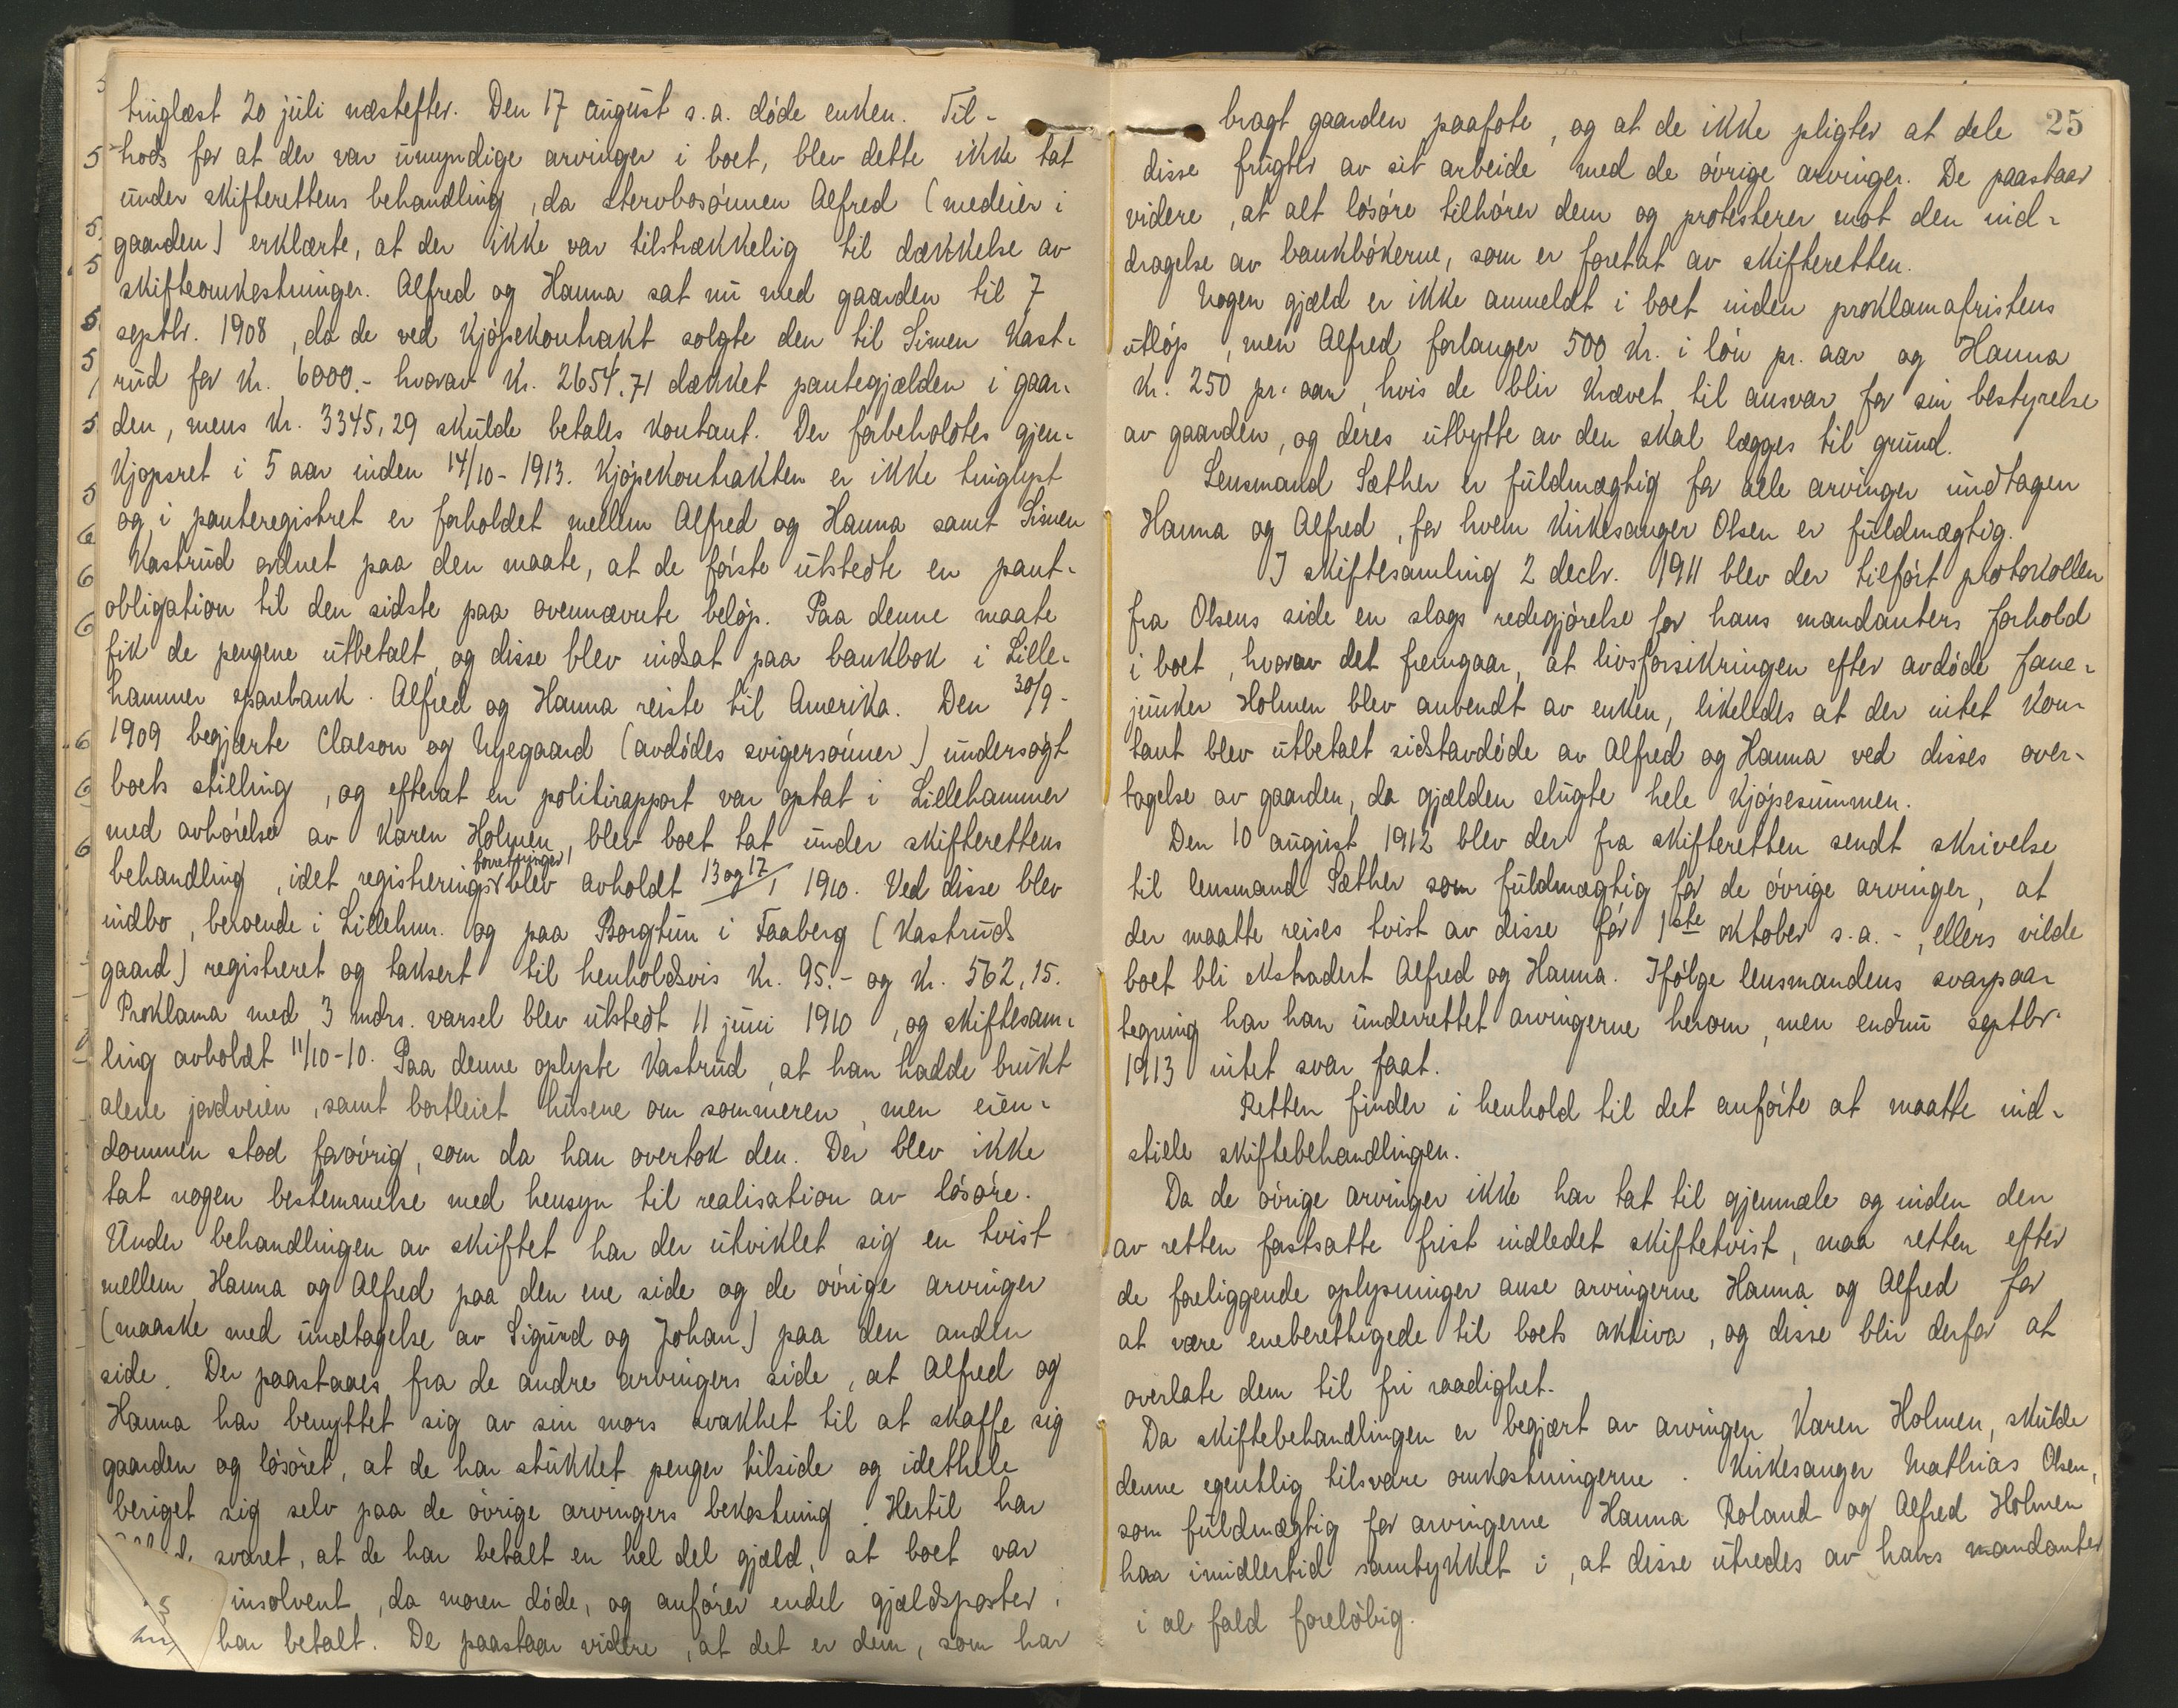 tinglæst 20 juli næstefter. Den 17 august s.a. döde enken. Til-
hods for at der var umyndige arvinger i boet, blev dette ikke tat
under skifterettens behandling, da stervbosönnen Alfred (medeier i
gaarden) erklærte, at der ikke var tilstrækkelig til dækkelse av
skifteomkostninger. Alfred og Hanna sat nu med gaarden til 7
septbr. 1908, da de ved kjöpekontrakt solgte den til Simen Kast-
rud for kr. 6000.- hvorav kr. 2654.71 dækket pantegjælden i gaar-
den, mens kr. 3345,29 skulde betales kontant. Der forbeholdtes gjen-
kjöpsret i 5 aar inden 14/10-1913. Kjöpekontrakten er ikke tinglyst
og i panteregistret er forholdet mellem Alfred og Hanna samt Simen
Kastrud ordnet paa den maate, at de förste utstedte en pant-
obligation til den sidste paa ovennævnte belöp. Paa denne maate
fik de pengene utbetalt, og disse blev indsat paa bankbok i Lille-
hammer sparebank. Alfred og Hanna reiste til Amerika. Den 30/9-
1909 begjærte Claeson og Nyegaard (avdödes svigersönner) undersögt
boets stilling, og efterat en politirapport var optat i Lillehammer
med avhörelse av Karen Holmen, blev boet tat under skifterettens
behandling, idet registreringsforretninger blev avholdt 13 og 17/1 1910. Ved disse blev
indbo, beroende i Lillehmr. og paa Borgtun i Faaberg (Kastruds
gaard) registreret og taksert til henholdsvis kr. 95.- og kr. 562,15.
Proklama med 3 mdrs. varsel blev utstedt 11 juni 1910, og skiftesam-
ling avholdt 11/10-10. Paa denne oplyste Kastrud, at han hadde brukt
alene jordveien, samt bortleiet husene om sommeren, men eien-
dommen stod forövrig, som da han overtok den. Der blev ikke
tat nogen bestemmelse med hensyn til realisation av lösöre.
Under behandlingen av skiftet har der utviklet sig en tvist
mellem Hanna og Alfred paa den ene side og de övrige arvinger
(maaske med undtagelse av Sigurd og Johan) paa den anden
side. Der paastaaes fra de andre arvingers side, at Alfred og
Hanna har benyttet sig av sin mors svakhet til at skaffe sig
gaarden og lösöret, at de har stukket penger tilside og idethele
beriget sig selv paa de övrige arvingers bekostning. Hertil har
svaret, at de har betalt en hel del gjæld, at boet var
insolvent, da moren döde, og anförer endel gjældsposter,
har betalt. De paastaar videre, at det er dem, som har
25
bragt gaarden paafote, og at de ikke pligter at dele
disse frugter av sit arbeide med de övrige arvinger. De paastaar
videre, at alt lösöre tilhörer dem og protesterer mot den ind-
dragelse av bankbökerne, som er foretat av skifteretten.
Nogen gjæld er ikke anmeldt i boet inden proklamafristens
utlöp, men Alfred forlanger 500 kr. i lön pr. aar og Hanna
kr. 250 pr. aar, hvis de blir krævet til ansvar for sin bestyrelse
av gaarden, og deres utbytte av den skal lægges til grund.
Lensmand Sæther er fuldmægtig for alle arvinger undtagen
Hanna og Alfred, for hvem kirkesanger Olsen er fuldmægtig.
I skiftesamling 2 decbr. 1911 blev der tilfört protokollen
fra Olsens side en slags redegjörelse for hans mandanters forhold
i boet, hvorav det fremgaar, at livsforsikringen efter avdöde fane-
junker Holmen blev anvendt av enken, likeledes at der intet kon-
tant blev utbetalt sidstavdöde av Alfred og Hanna ved disses over-
tagelse av gaarden, da gjælden slugte hele kjöpesummen.
Den 10 august 1912 blev der fra skifteretten sendt skrivelse
til lensmand Sæther som fuldmægtig for de övrige arvinger, at
der maatte reises tvist av disse för 1ste oktober s.a. -, ellers vilde
boet bli ekstradert Alfred og Hanna. Ifölge lensmandens svarpaa-
tegning har han underrettet arvingerne herom, men endnu septbr.
1913 intet svar faat.
Retten finder i henhold til det anförte at maatte ind-
stille skiftebehandlingen.
Da de övrige arvinger ikke har tat til gjenmæle og inden den
av retten fastsatte frist indledet skiftetvist, maa retten efter
de foreliggende oplysninger anse arvingerne Hanna og Alfred for
at være eneberettigede til boets aktiva, og disse blir derfor at
overlate dem til fri raadighet.
Da skiftebehandlingen er begjært av arvingen Karen Holmen, skulde
denne egentlig tilsvare omkostningerne. Kirkesanger Mathias Olsen,
som fuldmægtig for arvingerne Hanna Roland og Alfred Holmen
har imidlertid samtykket i, at disse utredes av hans mandanter
i al fald forelöbig.